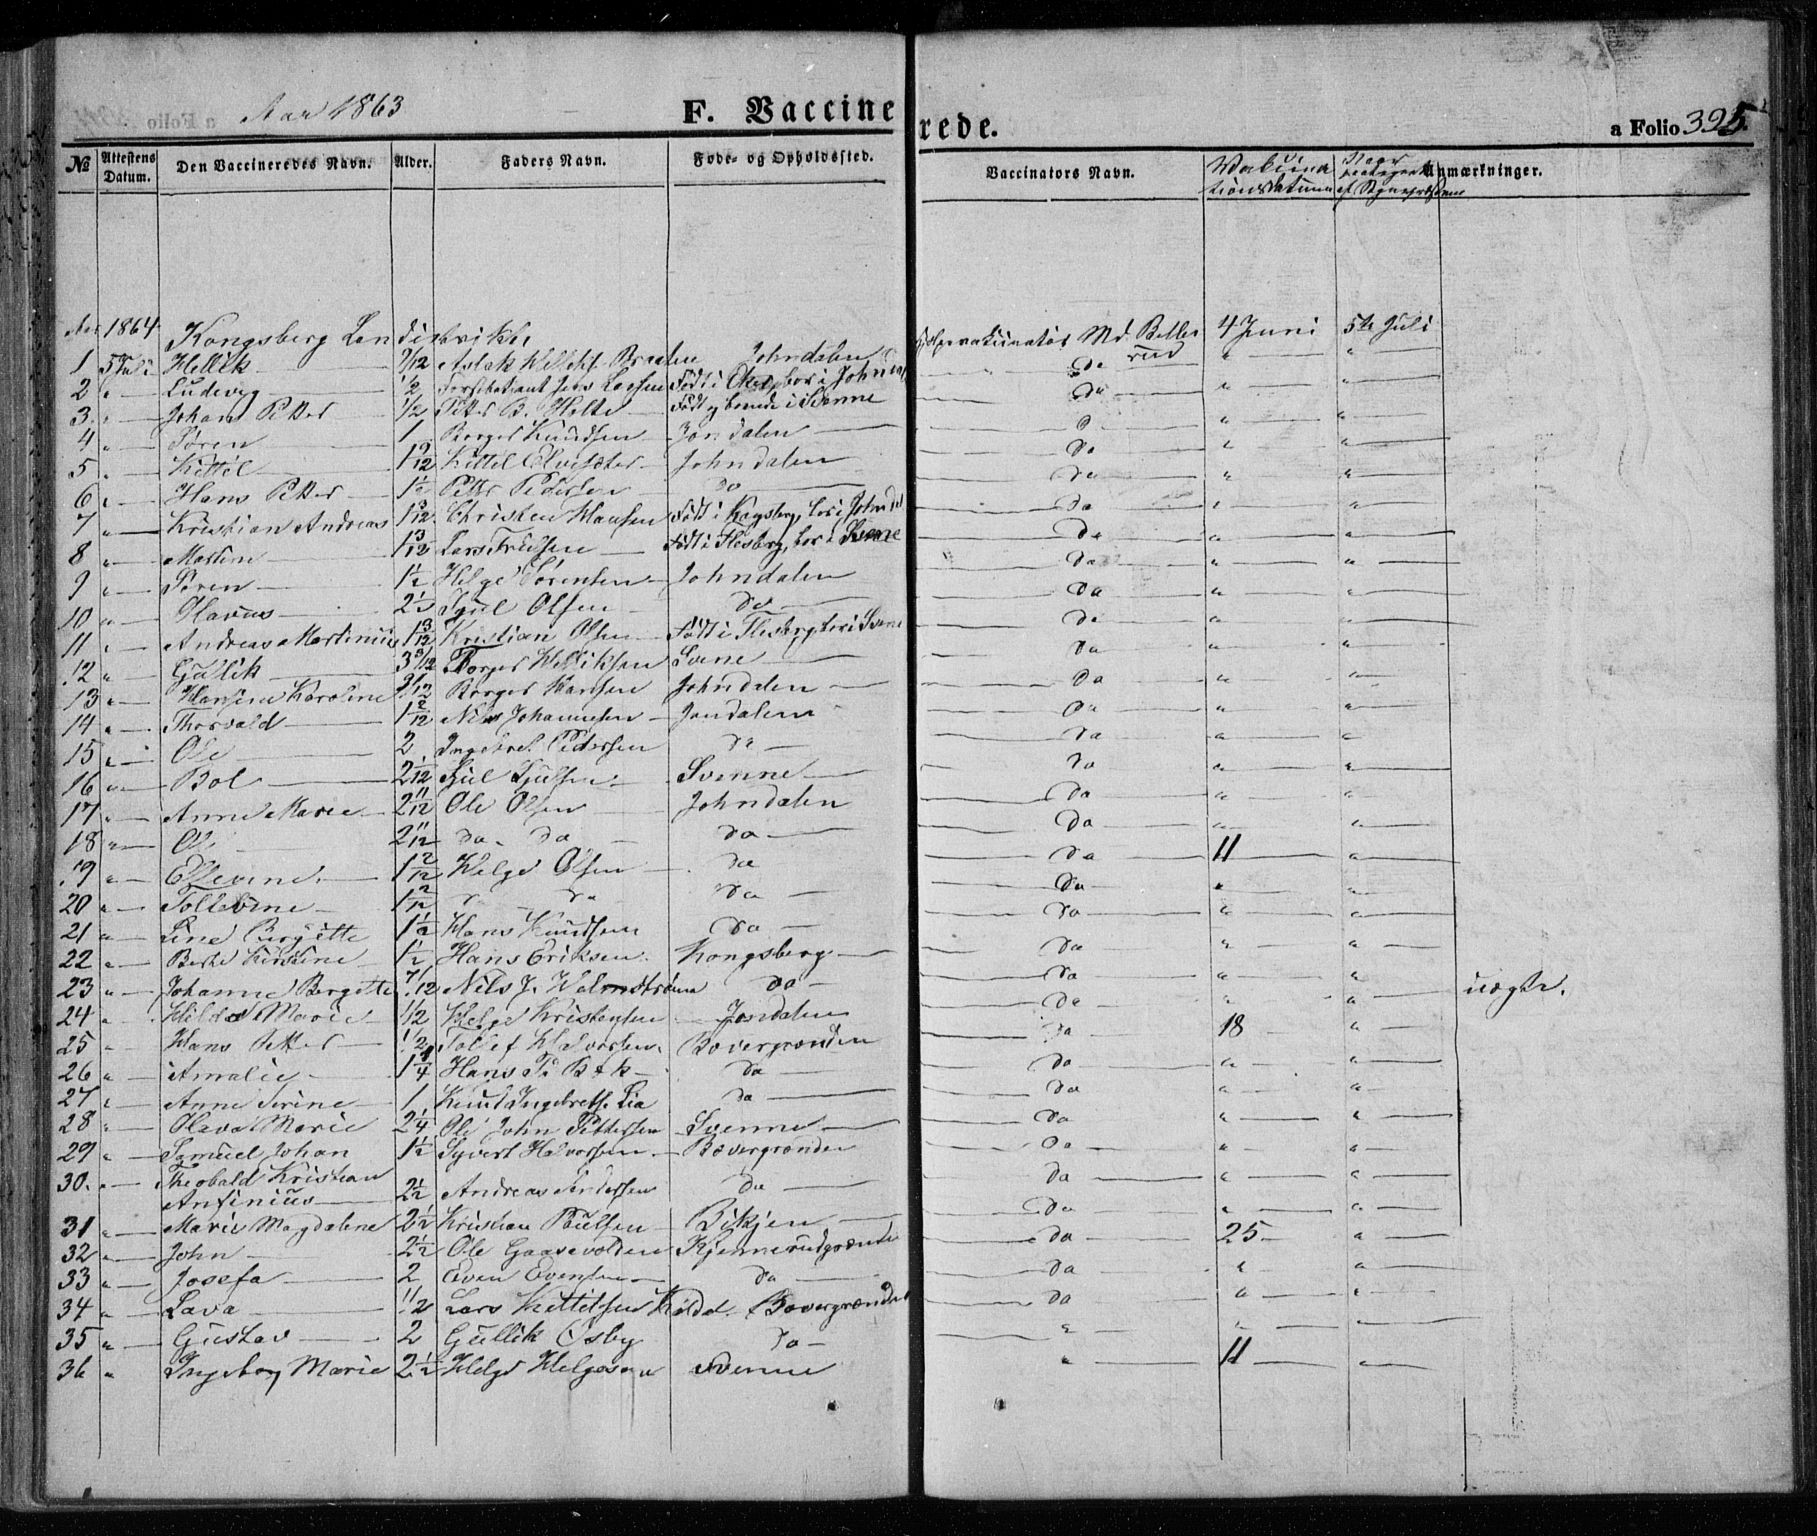 Aar 1863 F. Vaccinerede. a Folio 395.
№ Attestens Datum. Den Vaccineredes Navn. Alder. Faders Navn. Føde- og Opholdssted. Vaccinators Navn. Anmærkninger.
Aar 1864 Kongsberg Landistrikt Md. Bellerud 4 Juni 5te Juli
1 5 Juli Hellik 7/12 Aslak Helliks. Braaten Johndalen do " "
2 " Ludevig 1/2 Jens Larsen Født i Eker, bor i Johnd. do " "
3 " Johan Petter 1/2 Petter B. Holte Født og boende i Svenne
4 " Søren 1 Borger Knudsen Jondalen do " "
5 " Kittil Kittel Johndalen do " "
6 " Hans Petter 1 1/2 Petter Pedersen do do " "
7 " Kristian Andreas 1 3/12 Christen Hansen Født i Kongsberg, bor i Johnd. do " "
8 " Martin 1 3/12 Lars Født i Flesberg, bor i Svenne do " "
9 " Søren 1 1/2 Helge Sørensen Johndalen do " "
10 " Olavus 2 1/2 Kjul Olsen do do " "
11 " Andreas Martinius 1 3/12 Kristian Olsen Født i Flesberg bor i Svenne do " "
12 " Gullik Borger Helliksen Svene do " "
13 " Hansine Karoline Borger Hansen Johndalen do " "
14 " Thorvald 1 2/12 Nils Johannesen Jondalen do " "
15 " Ole 2 Ingebret Pedersen do do " "
16 " Bol Kjul Kjulsen Svenne do " "
17 " Anne Marie 2 11/12 Ole Olsen Johndalen do " "
18 " Ole 2 11/12 do do do do " "
19 " Ellevine 1 2/12 Helge Olsen do do 11 "
20 " Tollevine 1 2/12 do do do do " "
21 " Line Birgitte 1 1/2 Hans Knudsen do do " "
22 " Berte Kirstine 1 1/2 Hans Eriksen Kongsberg do " "
23 " Johanne Bergette 7/12 Nils J. Holmstrøm do do " " uægte.
24 " Hilda Marie 1/12 Helge Kristensen Jondalen do " "
25 " Hans Petter 1 1/2 Tollef Halvorsen Bævergrænden do 18 "
26 " Amalie 1 1/4 Hans do do " "
27 " Anne Serine 1 Knud Ingebrets. Lia do do " "
28 " Olava Marie 2 1/4 Ole John Pettersen Svenne do " "
29 " Samuel Johan 1 1/2 Syvert Halvorsen Bævergrænden do " "
30. " Theobald Kristian
Anfinius 2 1/2 Andreas Andersen do do " "
31 " Marie Magdalene 2 1/2 Kristian Poulsen Bikjen do " "
32 " John 2 1/2 Ole Gaasevolden Kjennerudgrænde do 25 "
33 " Josefa 2 Even Evensen do do " "
34 " Lava 1 1/2 Lars Kittelsen Bævergrænden do " "
35 " Gustav 2 Gullik Osby do " " "
36 " Ingeborg Marie 2 1/2 Helge Helgesen Svenne " 11 "